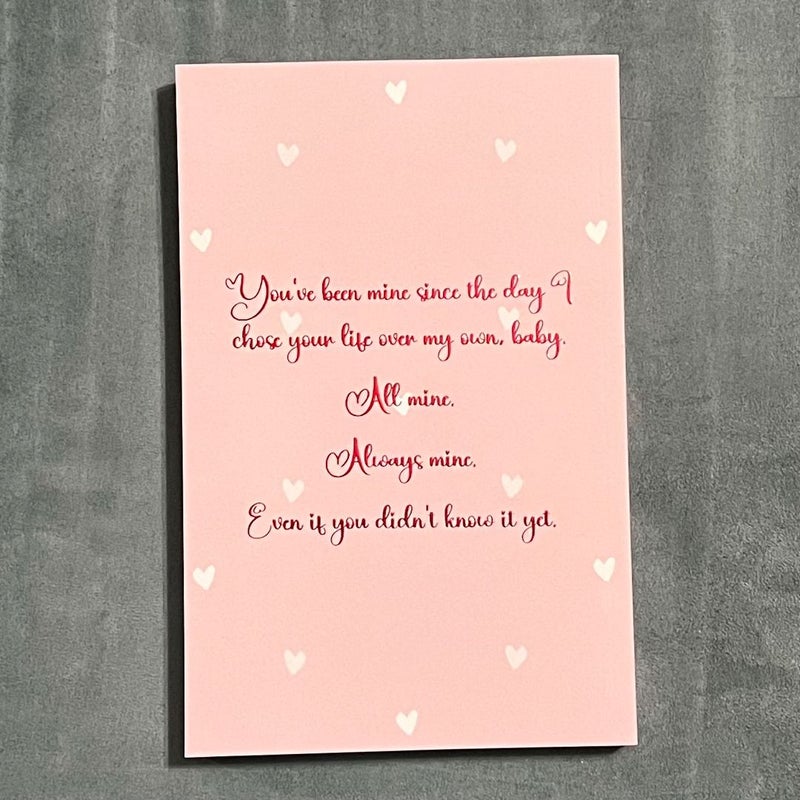 You've been mine since the day I
chose your life over my own, baby.
All mine.
Always mine.
Even if you didn't know it yet.